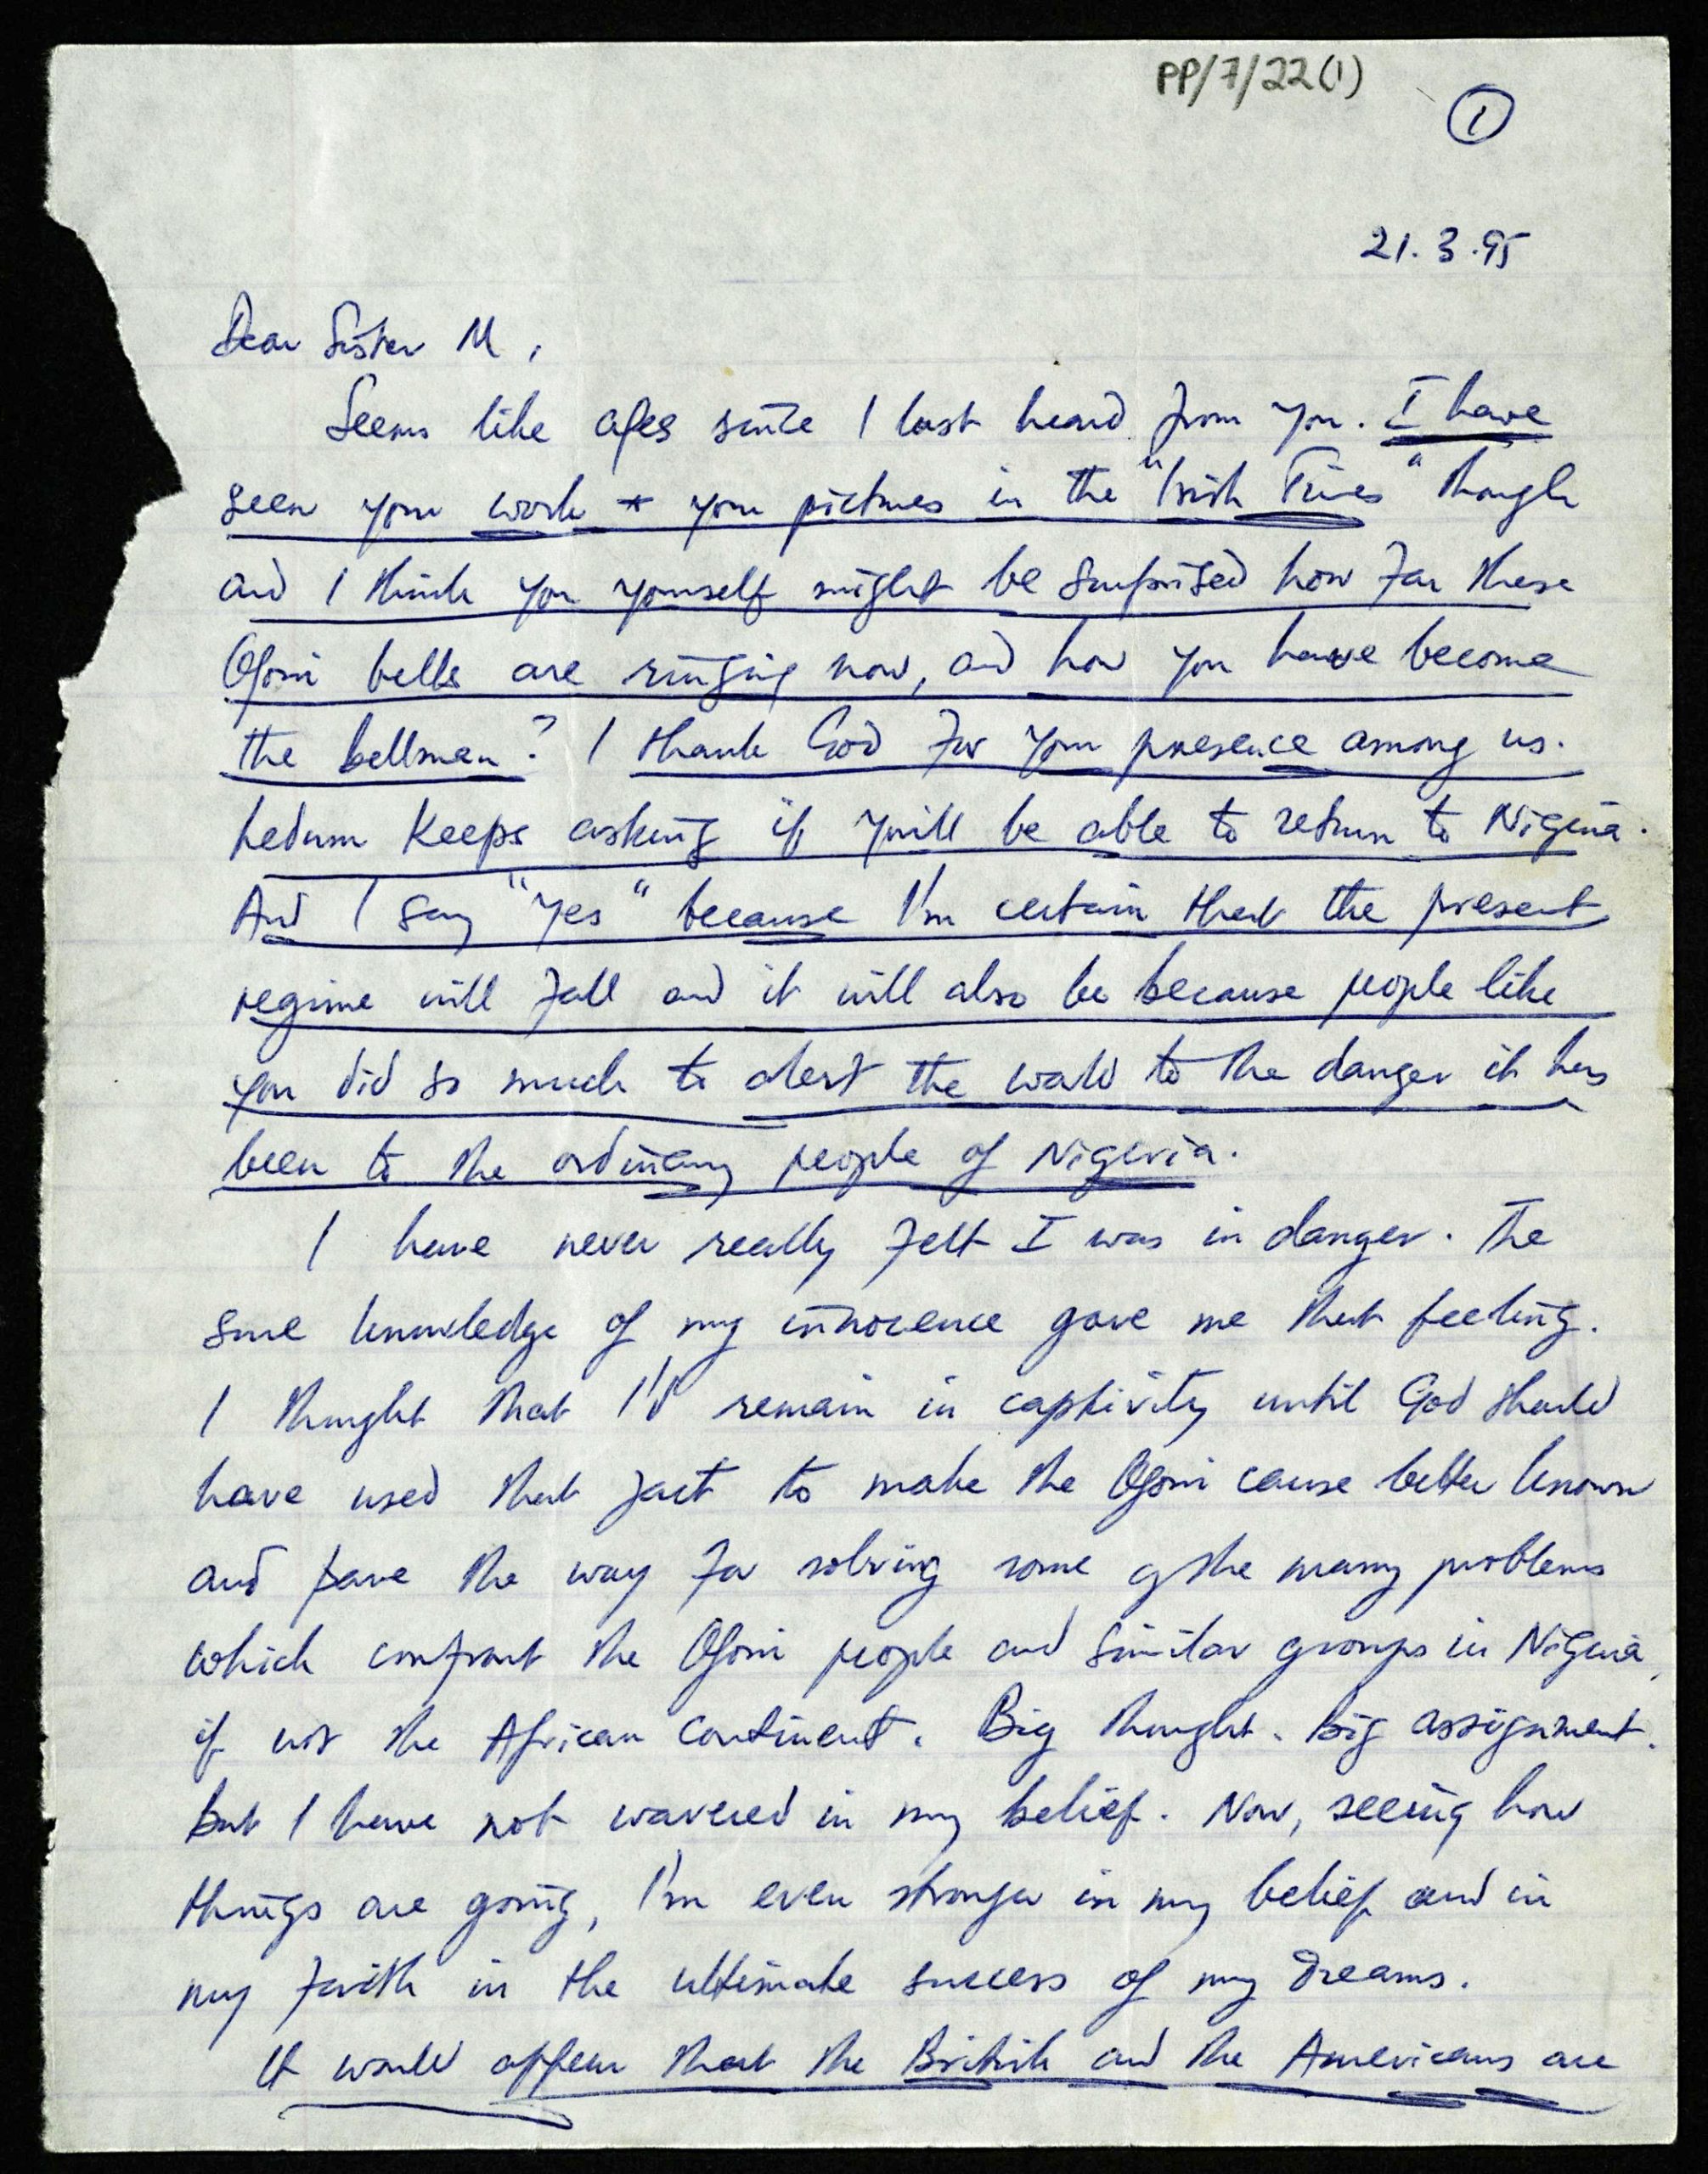 PP/7/22(1)
1
21.3.95
Dear Sister M,
Seems like ages since I last heard from you. I have
seen your work + your pictures in the "Irish Times" though
and I think you yourself might be surprised how far these
Ogoni bells are ringing now, and how you have become
the bellman? I thank God for your presence among us.
Ledum keeps asking if you'll be able to return to Nigeria.
And I say "yes" because I'm certain that the present
regime will fall and it will also be because people like
you did so much to alert the world to the danger it has
been to the ordinary people of Nigeria.
I have never really felt I was in danger. The
sure knowledge of my innocence gave me that feeling.
I thought that I'd remain in captivity until God should
have used that fact to make the Ogoni cause better known
and pave the way for solving some of the many problems
which confront the Ogoni people and similar groups in Nigeria,
if not the African continent. Big thought. Big assignment.
But I have not wavered in my belief. Now, seeing how
things are going, I'm even stronger in my belief and in
my faith in the ultimate success of my dreams.
It would appear that the British and the Americans are